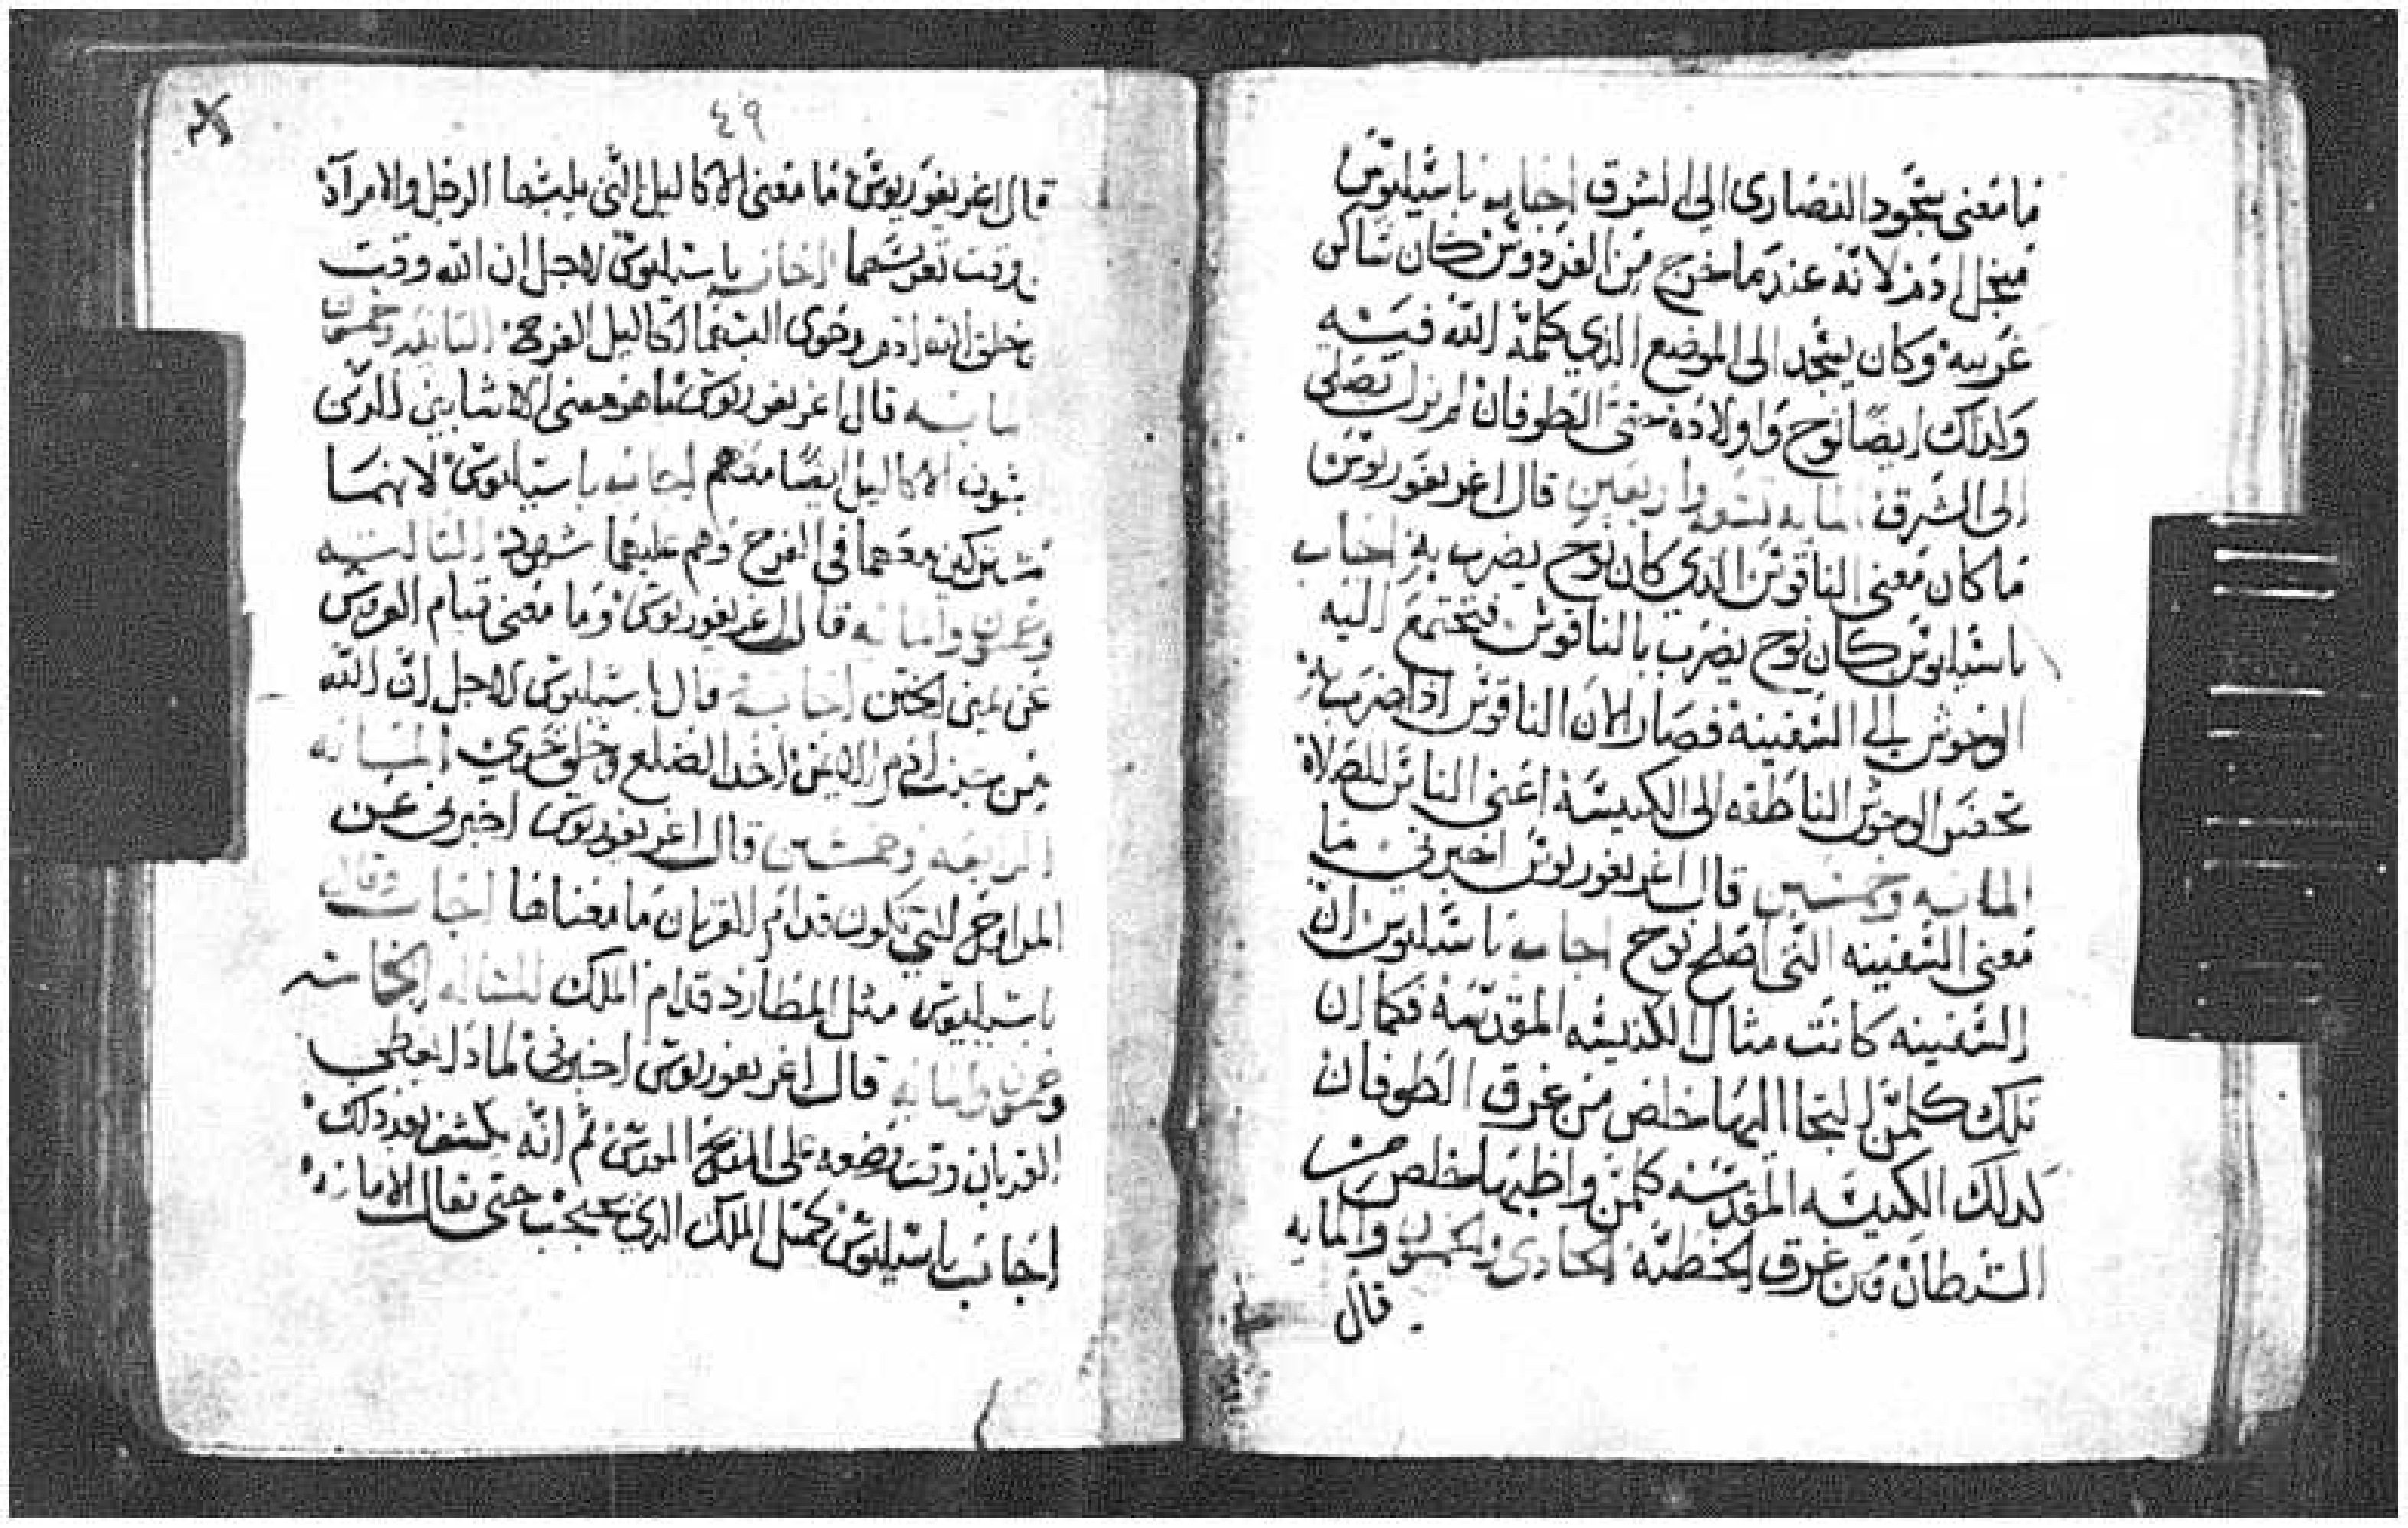 ما معنى سجود النصارى الى الشرق اجاب باسيليوس
من اجل ادم لانه عندما خرج من الفردوس كان ساكن
غربيه وكان يسجد الى الموضع الذي كلمه الله فيه
ولذلك ايضا نوح واولاده حتى الطوفان لم نزل نصلى
الى الشرق المايه تسعه واربعين قال اغريغوريوس
ما كان معنى الناقوس الذي كان نوح يضرب به اجاب
باسيليوس كان نوح يضرب بالناقوس فتجتمع اليه
الوحوش الى السفينه فصار الان الناقوس اذا ضرب به
تحضر الوحوش الناطقه الى الكنيسه اعنى الناس للصلاة
المايه وخمسين قال اغريغوريوس اخبرني ما
معنى السفينه التى اصلح نوح اجاب باسيليوس ان
السفينه كانت مثال الكنيسه المقدسه فكما ان
تلك كلمن التجا اليها خلص من غرق الطوفان
كذلك الكنيسه المقدسه كلمن واظبها خلص من
الشيطان ومن غرق الخطيه الحادى والخمسون والمايه
قال
٤٩
قال اغريغوريوس ما معنى الاكاليل التى يلبسها الرجل والامرأة
وقت تعريسهما اجاب باسيليوس لاجل ان الله وقت
خلق الله ادم وحوى البسهما اكاليل الفرح الثانيه وخمسون
مايه قال اغريغوريوس ما هو معنى الاشابين الذين
الاكاليل ايضا معهم اجاب باسيليوس لانهما
مشتركين معهما في الفرح وهم عليهما شهود الثالثه
وخمسون والمايه قال اغريغوريوس وما معنى قيام العريس
عن يمين الختن اجابه قال باسيليوس لاجل ان الله
من جنب ادم الايمن اخد الضلع وخلق حوى المسايه
الرابعه وخمسين قال اغريغوريوس اخبرنى عن
المراوح التي تكون قدام القربان ما معناها اجاب وقال
باسيليوس مثل المطارد قدام الملك المسايه الخامسه
وخمسون والمايه قال اغريغوريوس اخبرنى لماذا يغطى
القربان وقت نضعه على المدبح المقدس ثم انه يكشف بعد ذلك
اجاب باسيليوس كمثل الملك الذي يحتجب حتى تقال الامانه